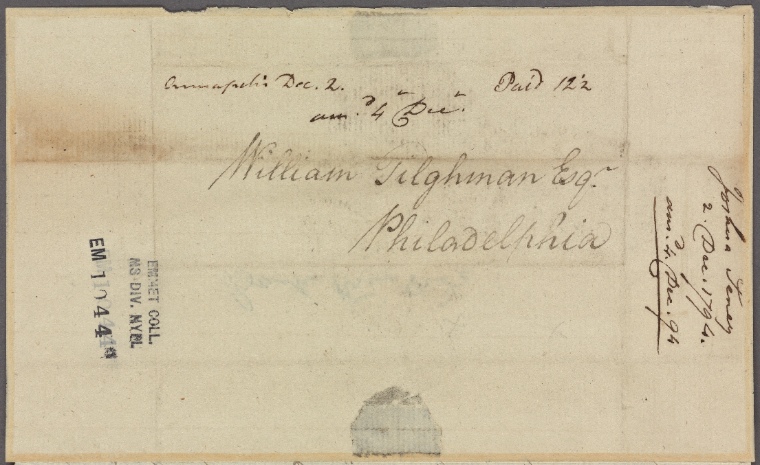 Annapolis Dec. 2.
Paid 12½
anṡᵈ 4ᵗʰ Decʳ
William Tilghman Esqʳ
Philadelphia
Joshua Seney
2. Dec. 1794.
ansᵈ 4. Dec. 94
EMMET COLL.
MS. DIV. NYPL
EM 1044